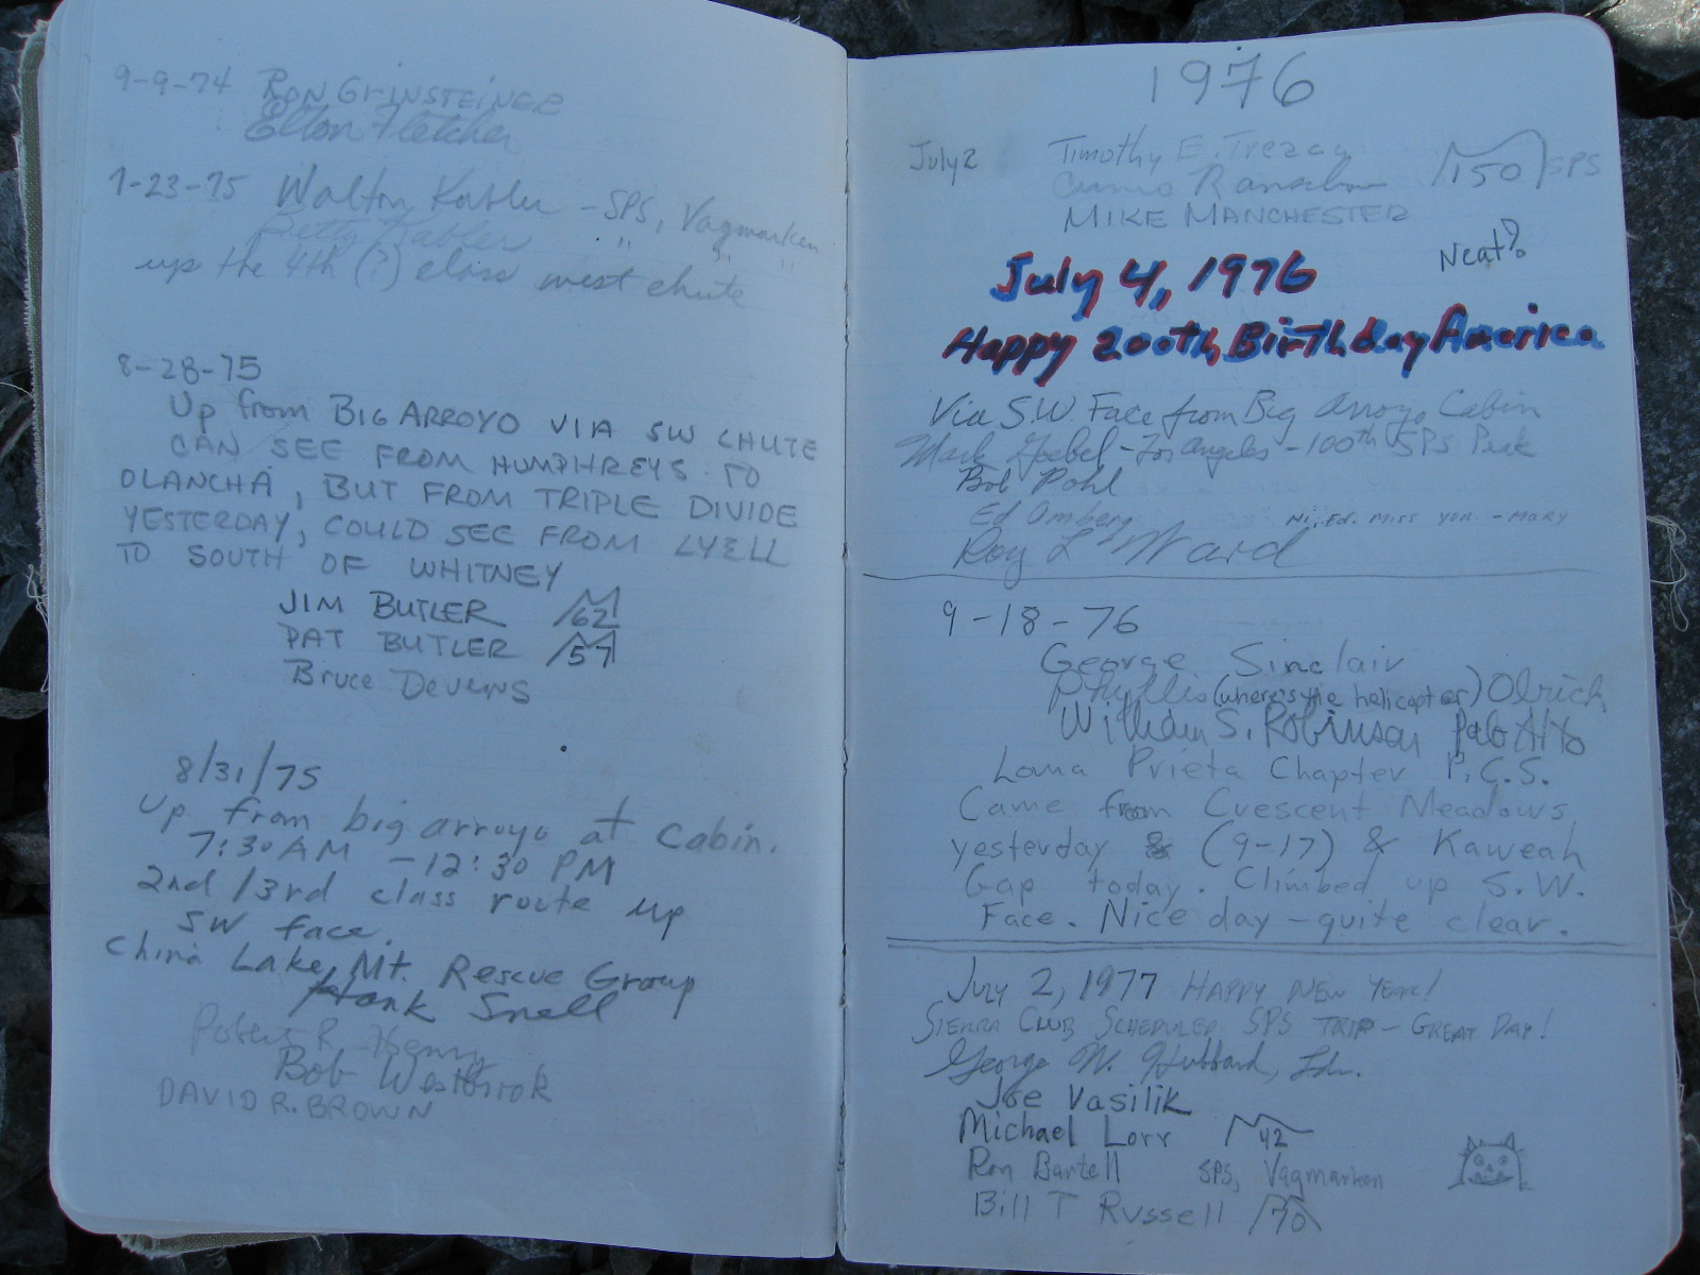 9-9-74 RON GRINSTEINER
Elton Fletcher
7-23-75 Walton Kabler - SPS, Vagmarken
Betty Kabler " " "
up the 4th (?) class west chute
8-28-75
Up from BIG ARROYO VIA SW CHUTE
CAN SEE FROM HUMPHREYS TO
OLANCHA, BUT FROM TRIPLE DIVIDE
YESTERDAY, COULD SEE FROM LYELL
TO SOUTH OF WHITNEY
JIM BUTLER 62
PAT BUTLER 57
Bruce DEVENS
8/31/75
Up from big arroyo at cabin.
7:30 AM - 12:30 PM
2nd/3rd class route up
SW face.
China Lake Mt. Rescue Group
Hank Snell
Robert R. Henry
Bob Westbrook
DAVID R. BROWN
1976
July 2 Timothy E. Trezay 150 SPS
MIKE MANCHESTER
Neat?
July 4, 1976
Happy 200th Birthday America
Via S.W. Face from Big Arroyo Cabin
Mark Goebel - Los Angeles - 100th SPS Peak
Bob Pohl
Ed Omberg Hi, Ed. Miss you - Mary
Roy L Ward
9-18-76
George Sinclair
Phyllis (where's the helicopter) Olrich
William S. Robinson Palo Alto
Loma Prieta Chapter P.C.S.
Came from Crescent Meadows
yesterday & (9-17) & Kaweah
Gap today. Climbed up S.W.
Face. Nice day - quite clear.
July 2, 1977 HAPPY NEW YEAR!
SIERRA CLUB SCHEDULED SPS TRIP - GREAT DAY!
George W. Hubbard, Ldr.
Joe Vasilik
Michael Lorr 42
Ron Bartell SPS, Vagmarken
Bill T Russell 70